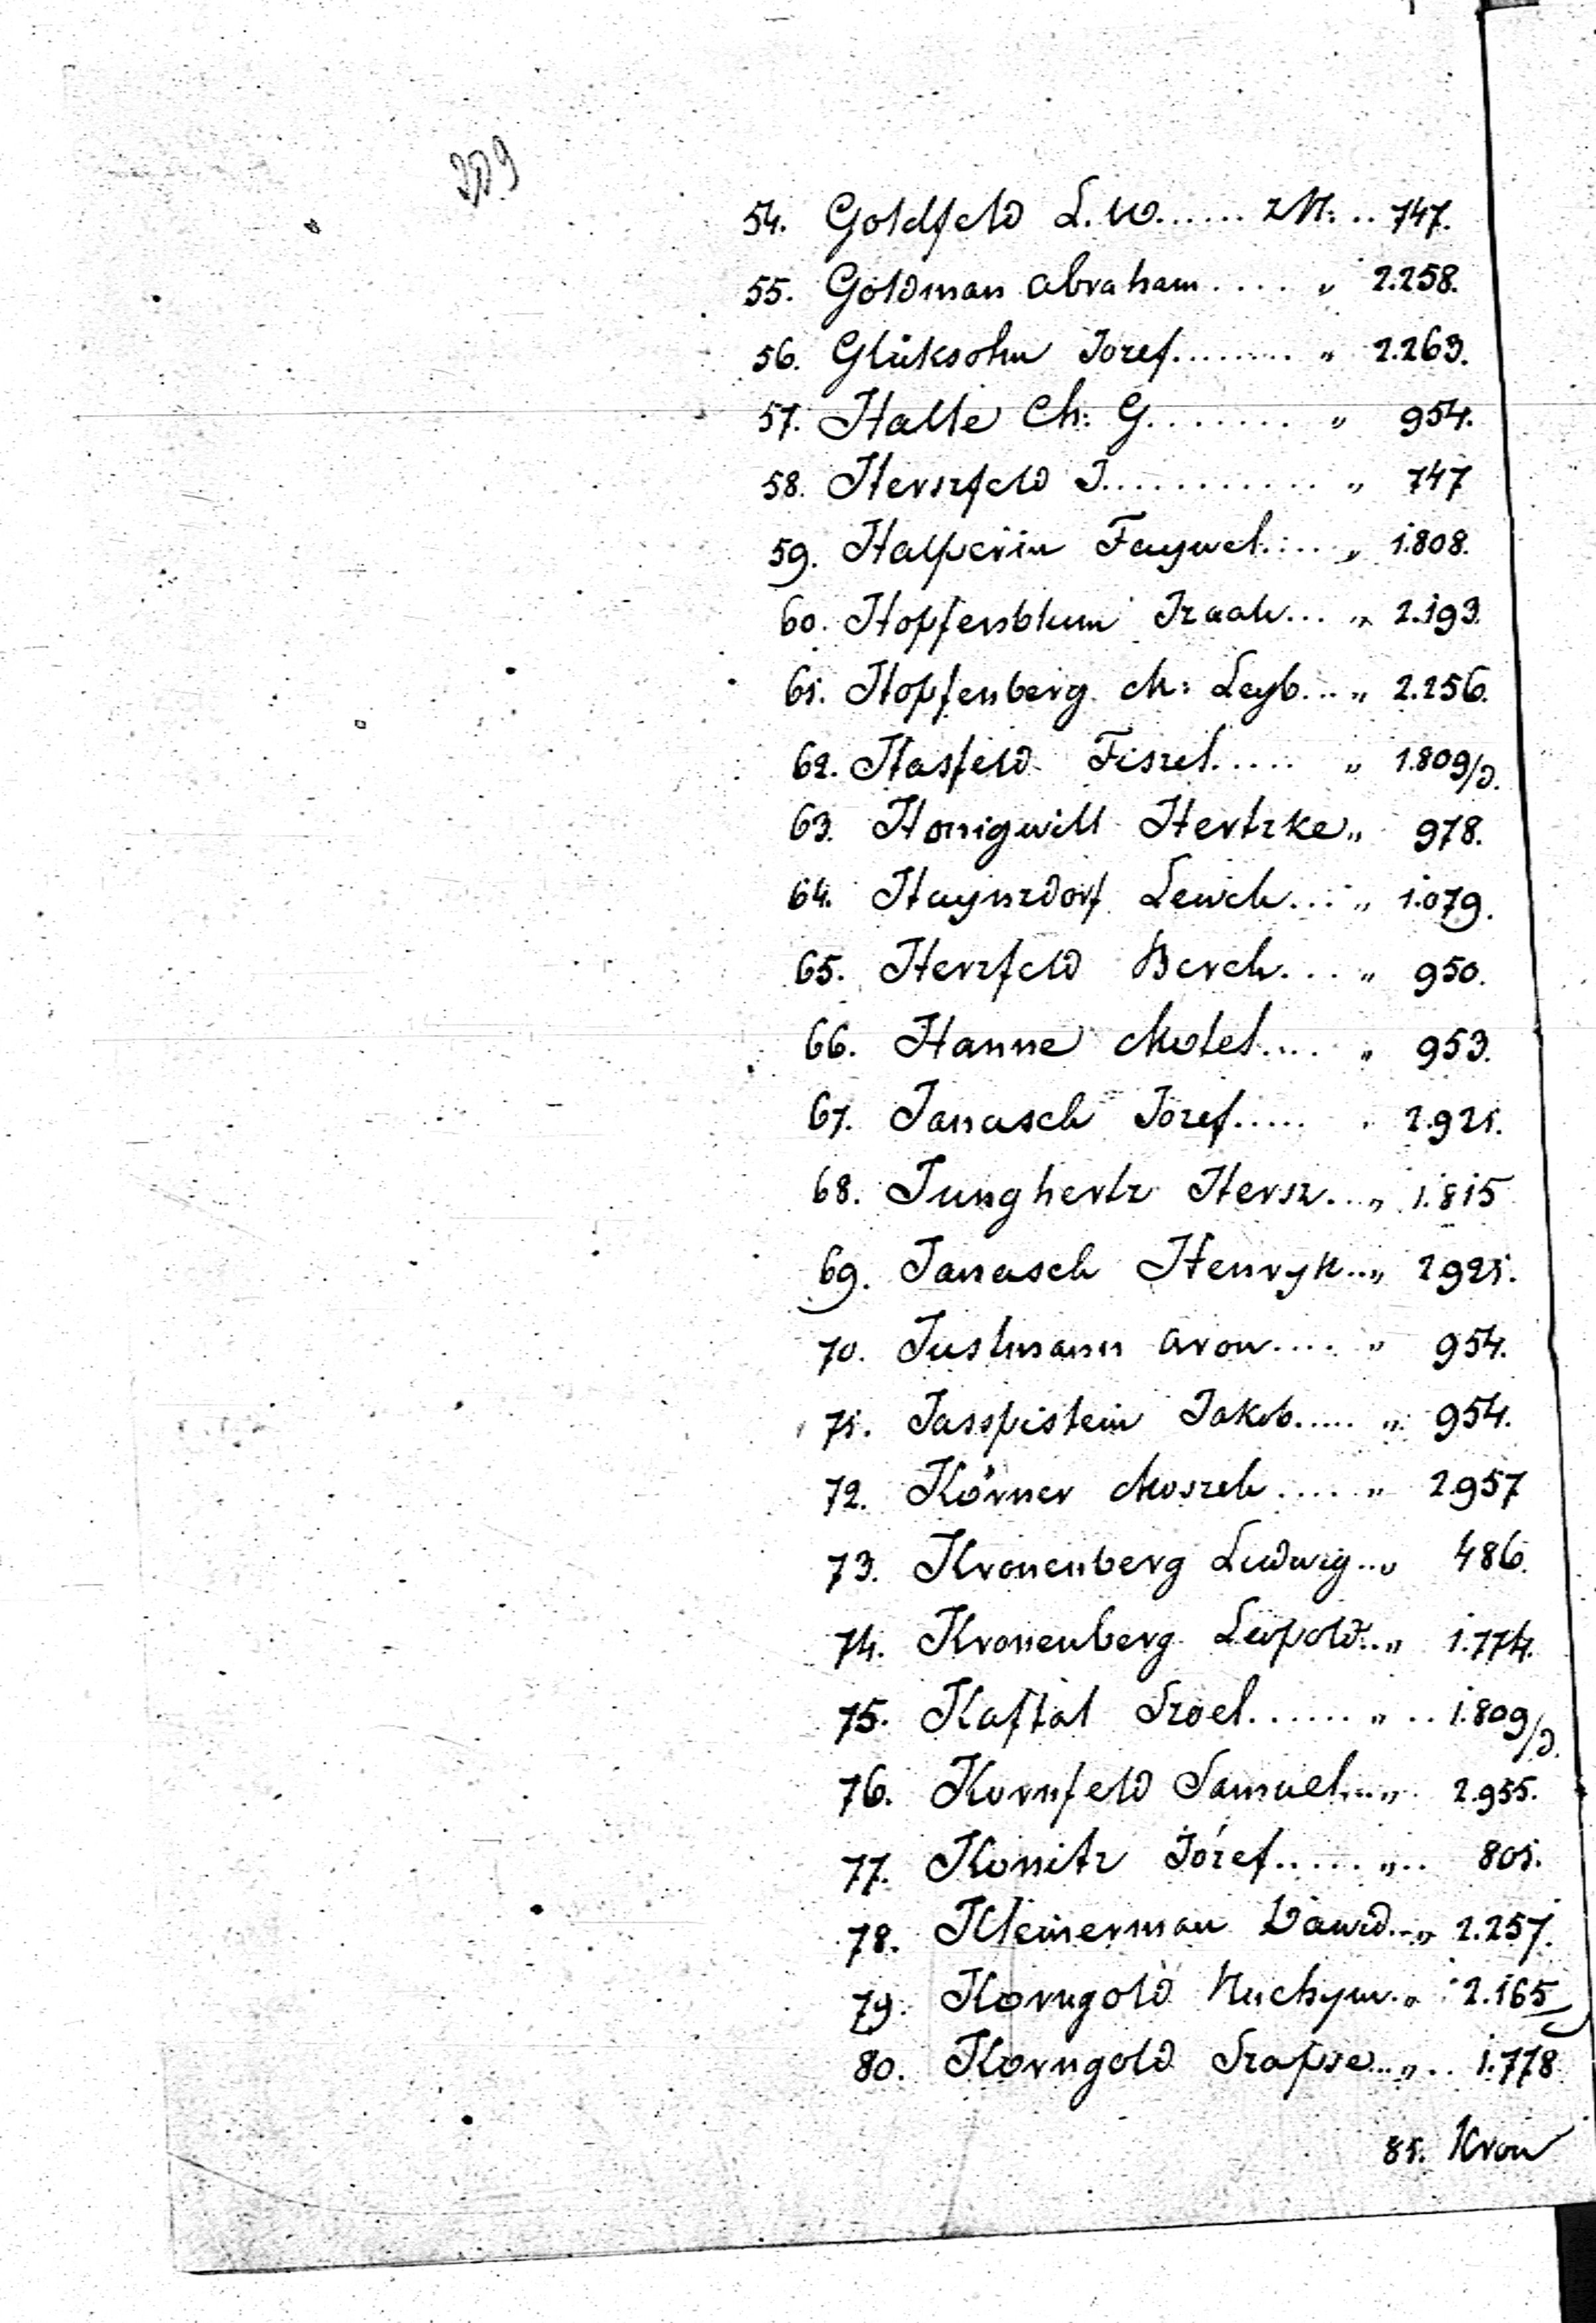 54. Goldfeld L. W...... z N: .. 747.
55. Goldman Abraham .... „ 2.258.
56. Glüksohn Jozef........ „ 2.263.
57. Halle Ch: G........ „ 954.
58. Herszfeld J............ „ 747
59. Halperin Faywel..... „ 1.808.
60. Hopfenblum Izaak... „ 2.193.
61. Hopfenberg M: Leyb... „ 2.256.
62. Hasfeld Fiszel..... „ 1.809/D.
63. Honigwill Hertzke „ 978.
64. Haynzdorf Lewek... „ 1.079.
65. Herzfeld Berek.... „ 950.
66. Hanne Motel.... „ 953.
67. Janasch Jozef..... „ 2.921.
68. Junghertz Hersz... „ 1.815
69. Janasch Henryk.. „ 2.921.
70. Justmann Aron.... „ 954.
71. Jasspistein Jakob..... „ 954.
72. Körner Moszek.... „ 2.957
73. Kronenberg Ludwig.. „ 486.
74. Kronenberg Leopold.. „ 1.774.
75. Kaftal Sroel...... „ .. 1.809/D.
76. Kornfeld Samuel... „ 2.955.
77. Konitz Józef..... „ .. 801.
78. Kleinerman Dawid.. „ 2.257.
79. Korngold Nuchym. „ 2.165
80. Korngold Szapse... „ .. 1.778
81. Kron